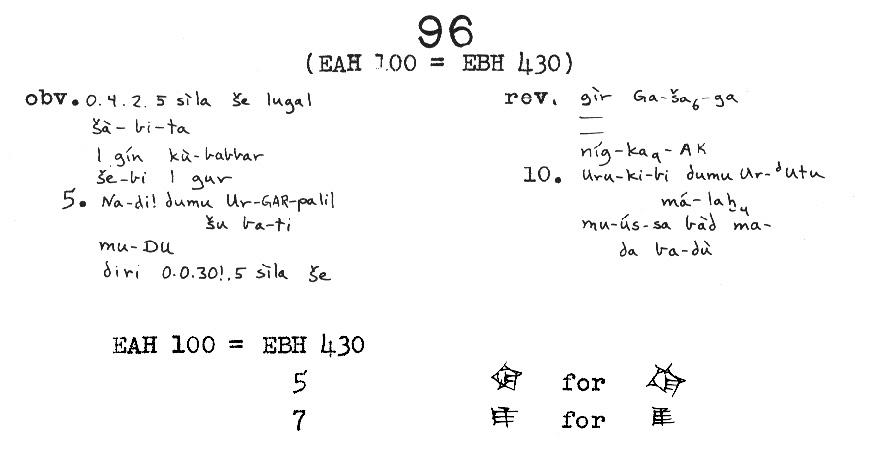 96
(EAH 100 = EBH 430)
obv. 0.4.2.5 sìla še lugal
šà-bi-ta
1 gín kù-babbar
še-bi 1 gur
5. Na-di! dumu Ur-GAR-palil
šu ba-ti
mu-DU
diri 0.0.30!.5 sìla še
rev. gìr Ga-ša₆-ga
níg-ka₉-AK
10. Uru-ki-bi dumu Ur-ᵈUtu
má-laḫ₄
mu-ús-sa bàd ma-
da ba-dù
EAH 100 = EBH 430
5 for
7 for